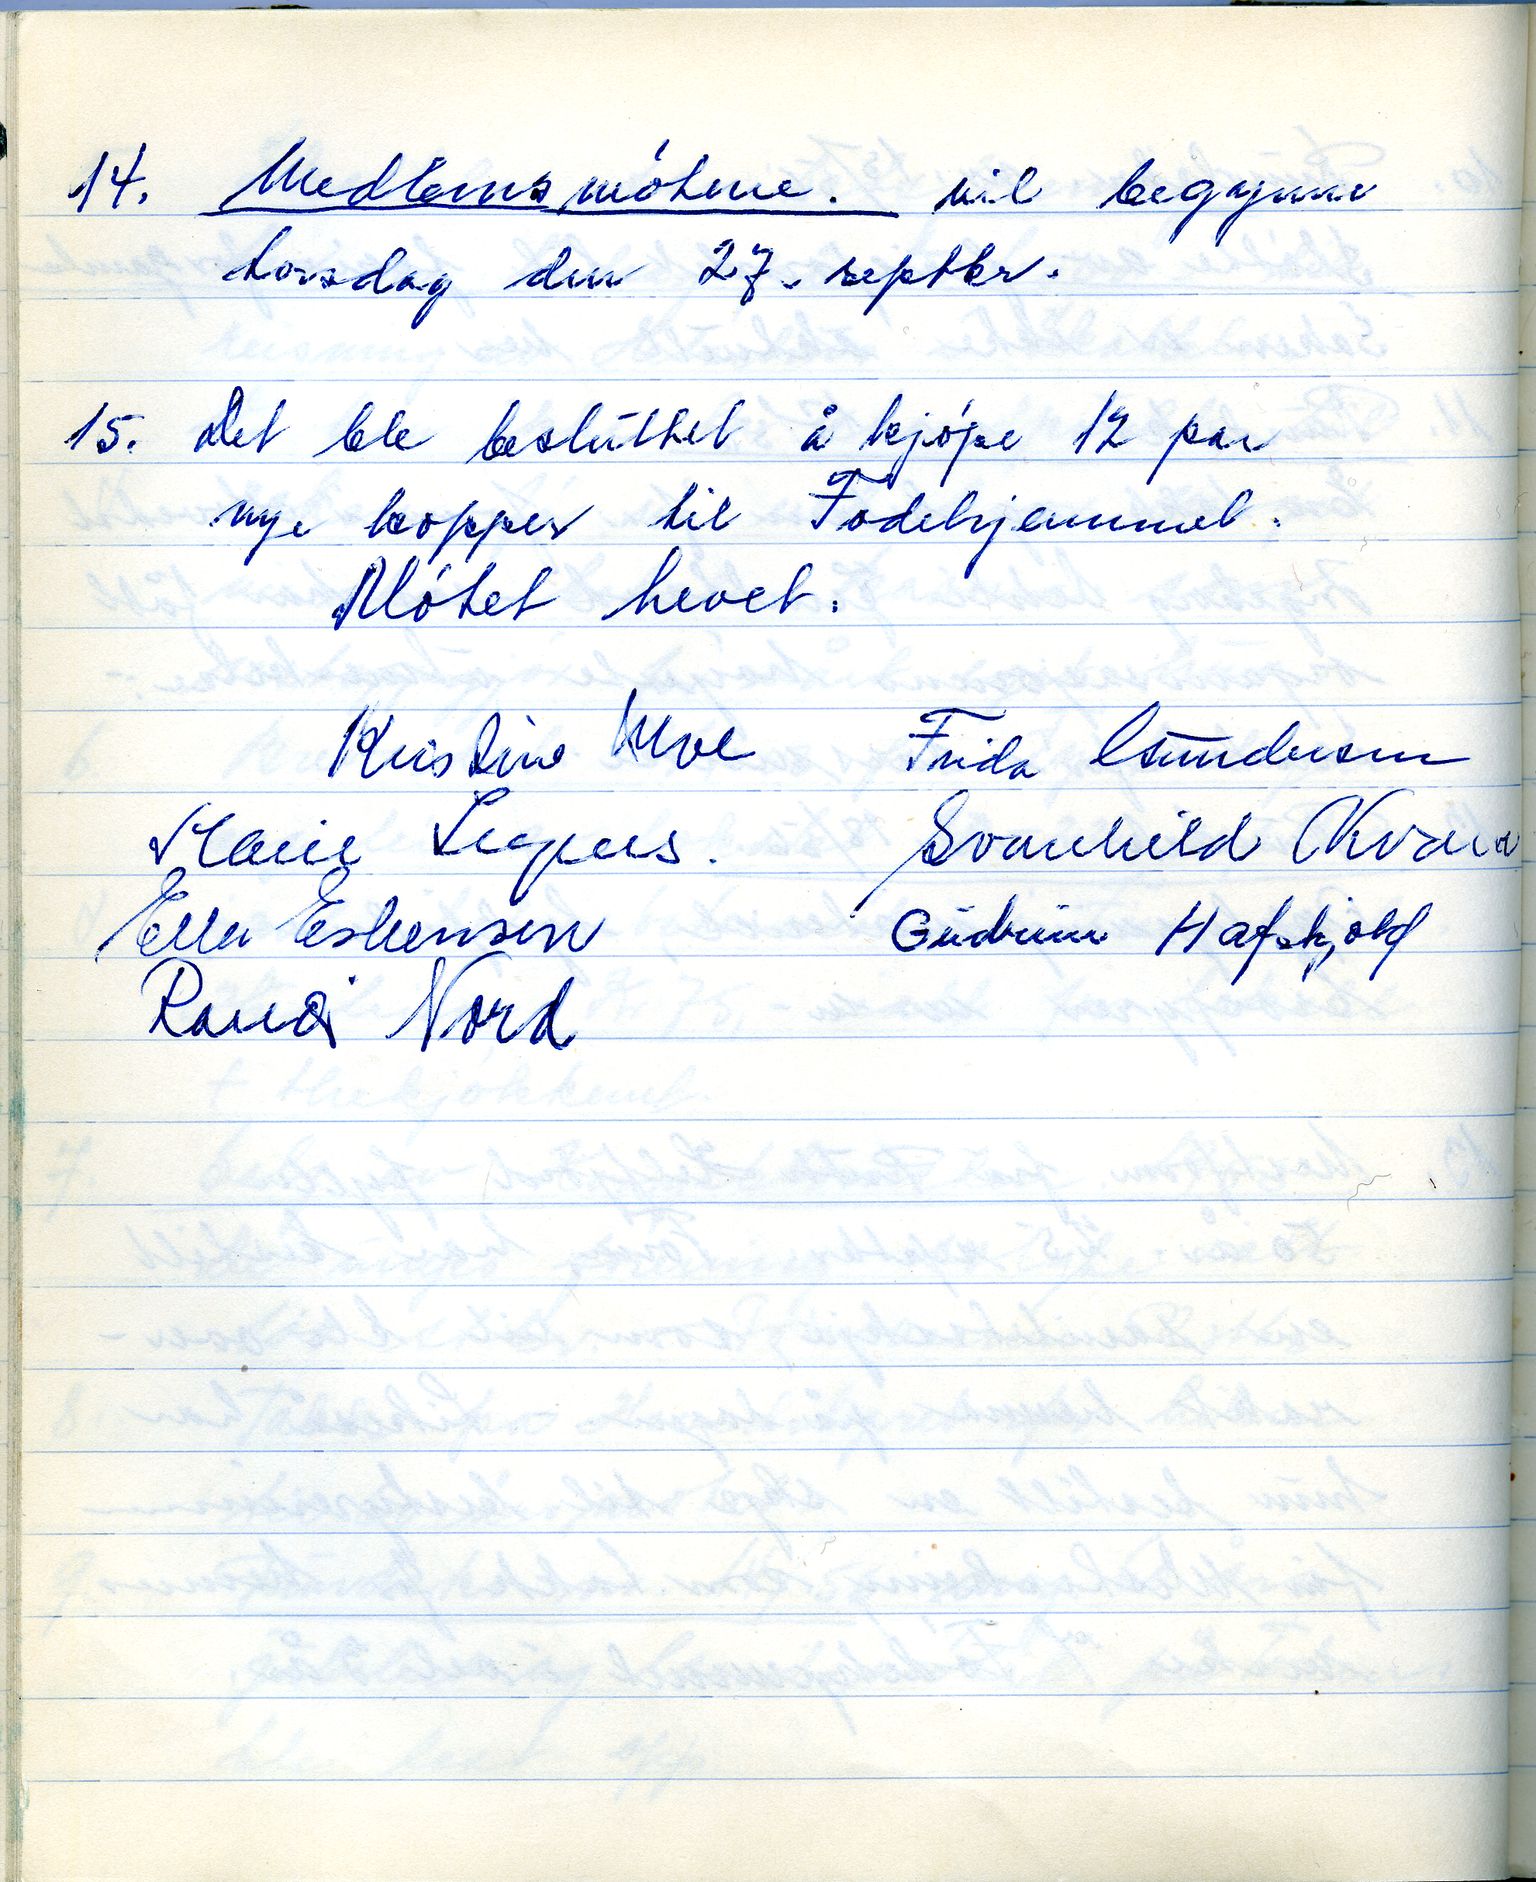 14. Medlemsmötene. vil begynne
torsdag den 27. septbr.
15. Det ble besluttet å kjöpe 12 par
nye kopper til Födehjemmet.
Mötet hevet.
Kristine Moe Frida Gundersen
Marie Svanhild Kvam
Ella Eskensen Gudrun Hafskjold
Randi Nord